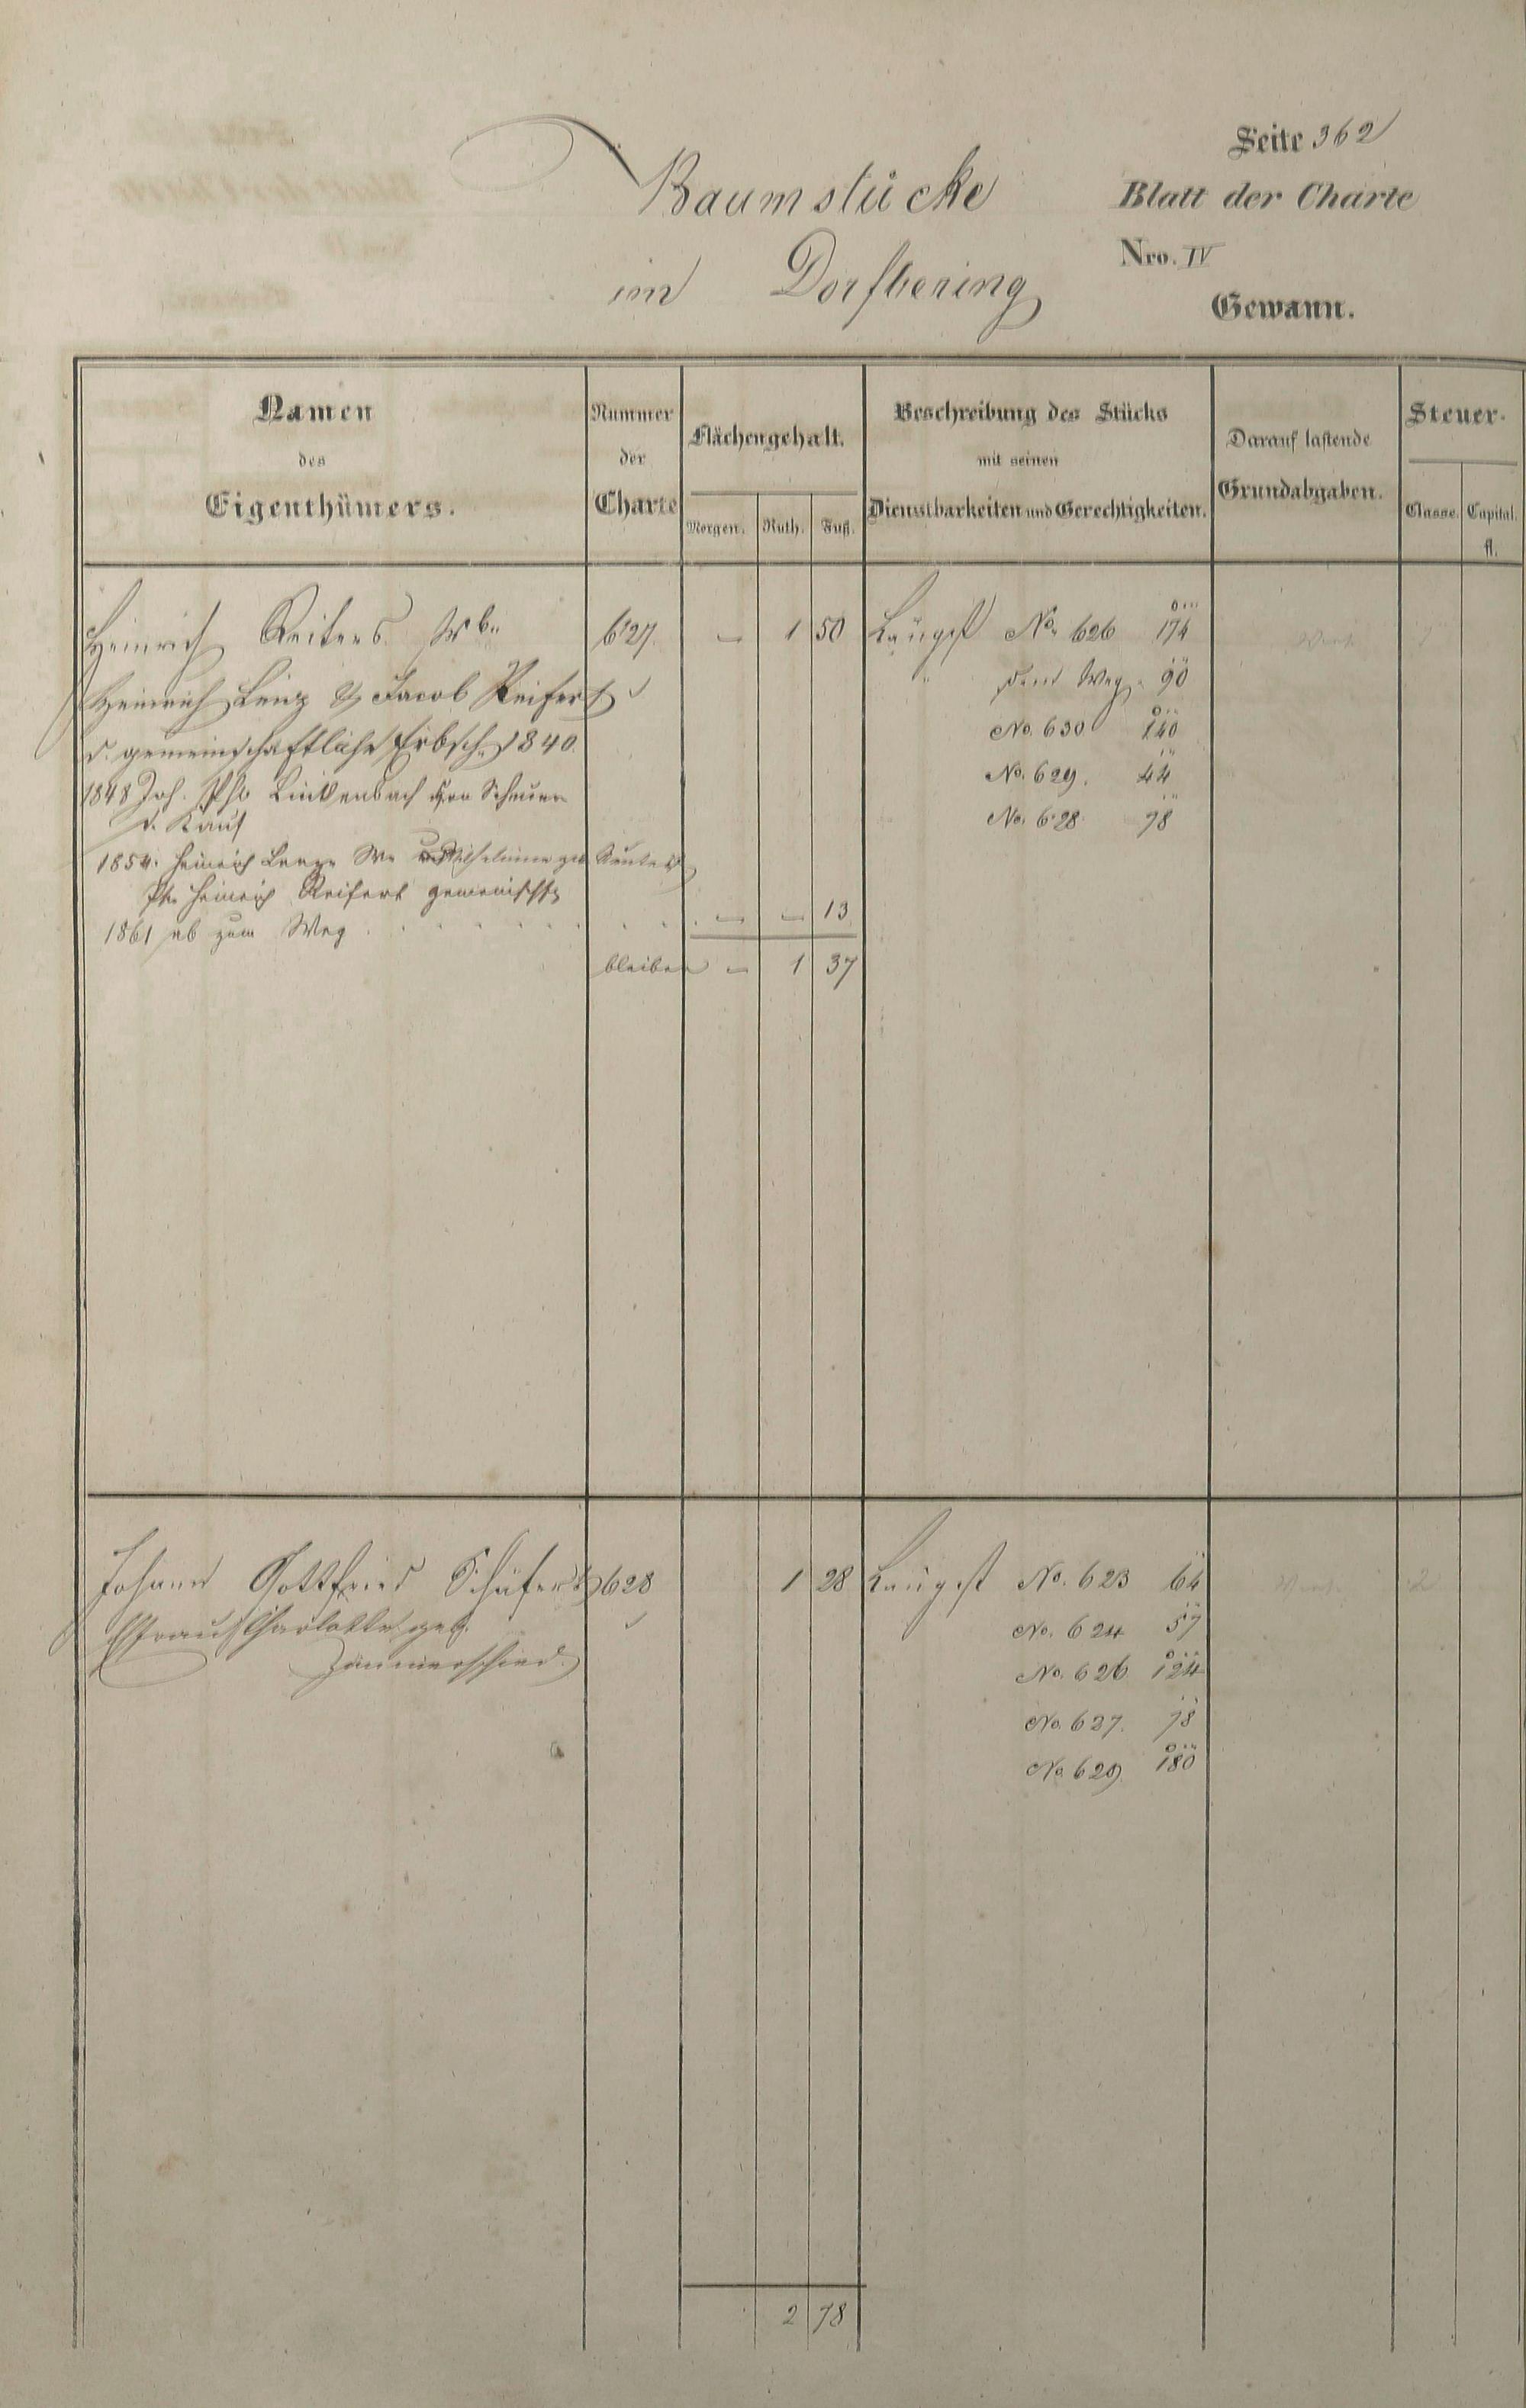 Seite 362
Baumstücke
Blatt der Charte
im Dorfbering
Nro. IV
Gewann.
Namen
des
Eigenthümers.
Nummer
der
Charte
Flächengehalt.
Morgen. Ruth. Fuß.
Beschreibung des Stücks
mit seinen
Dienstbarkeiten und Gerechtigkeiten.
Darauf lastende
Grundabgaben.
Steuer-
Classe. Capital.
fl.
Heinrich Reiters Wb. 627. – 1 50 Längst No. 626 174
Heinrich Lenz & Jacob Reifert dem Weg 90
d. gemeinschaftliche Erbsch. 1840. No. 630 140
1848 Joh. Phil Linkenbach von Scheuern No. 629. 44
d. Kauf No. 628 78
1854. Heinrich We Wilhelmine
Heinrich Reifert gemeinschftl
1861 ab zum Weg . . . – – 13
bleiben – 1 37
Johann Gottfried Schäfer 628 1 28 Längst No. 623 64
Ehefrau Charlotte geb. No. 624 57
Zimmerschied. No. 626 124
No. 627. 78
No. 629 180
2 78